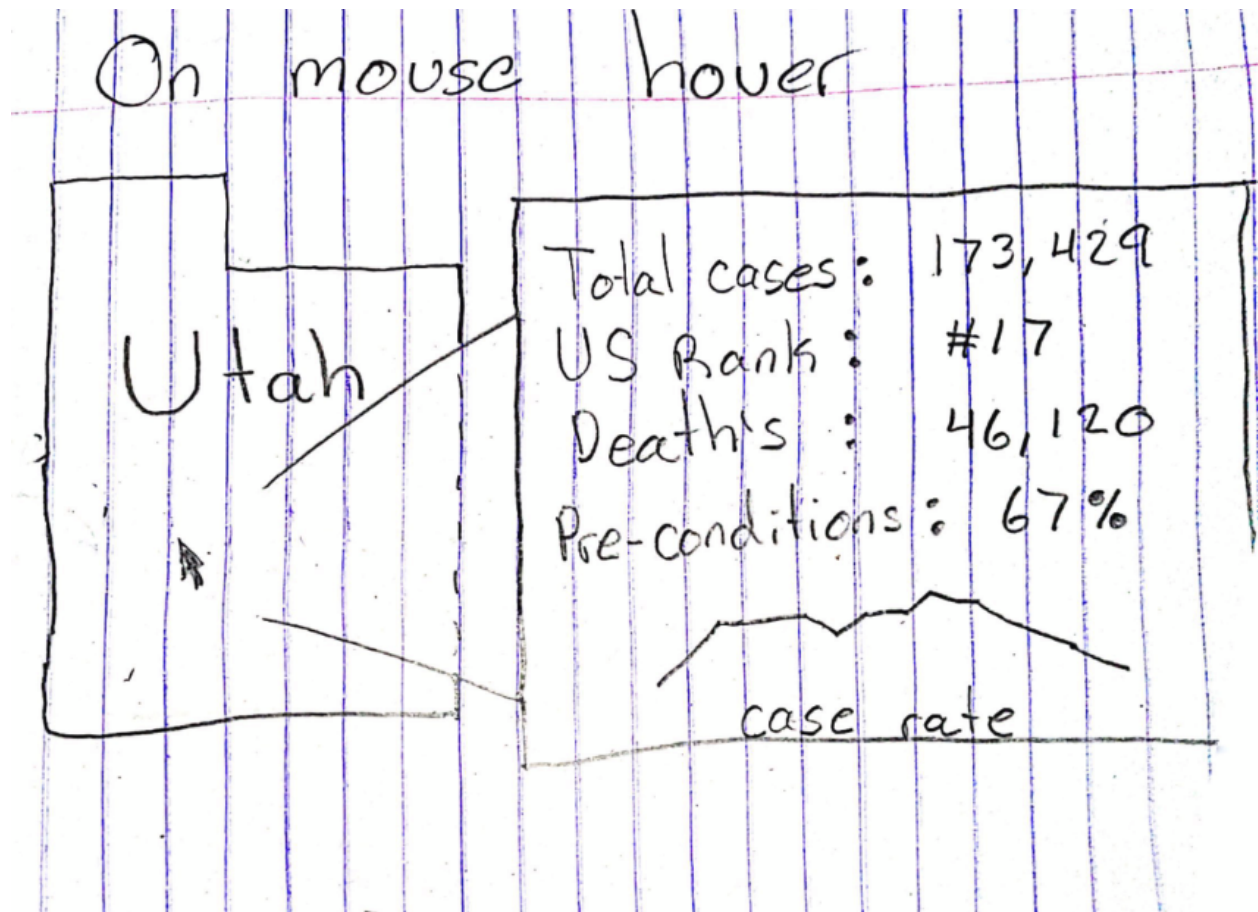 On mouse hover
Utah
Total cases: 173,429
US Rank: #17
Death's : 46,120
Pre-conditions: 67%
case rate